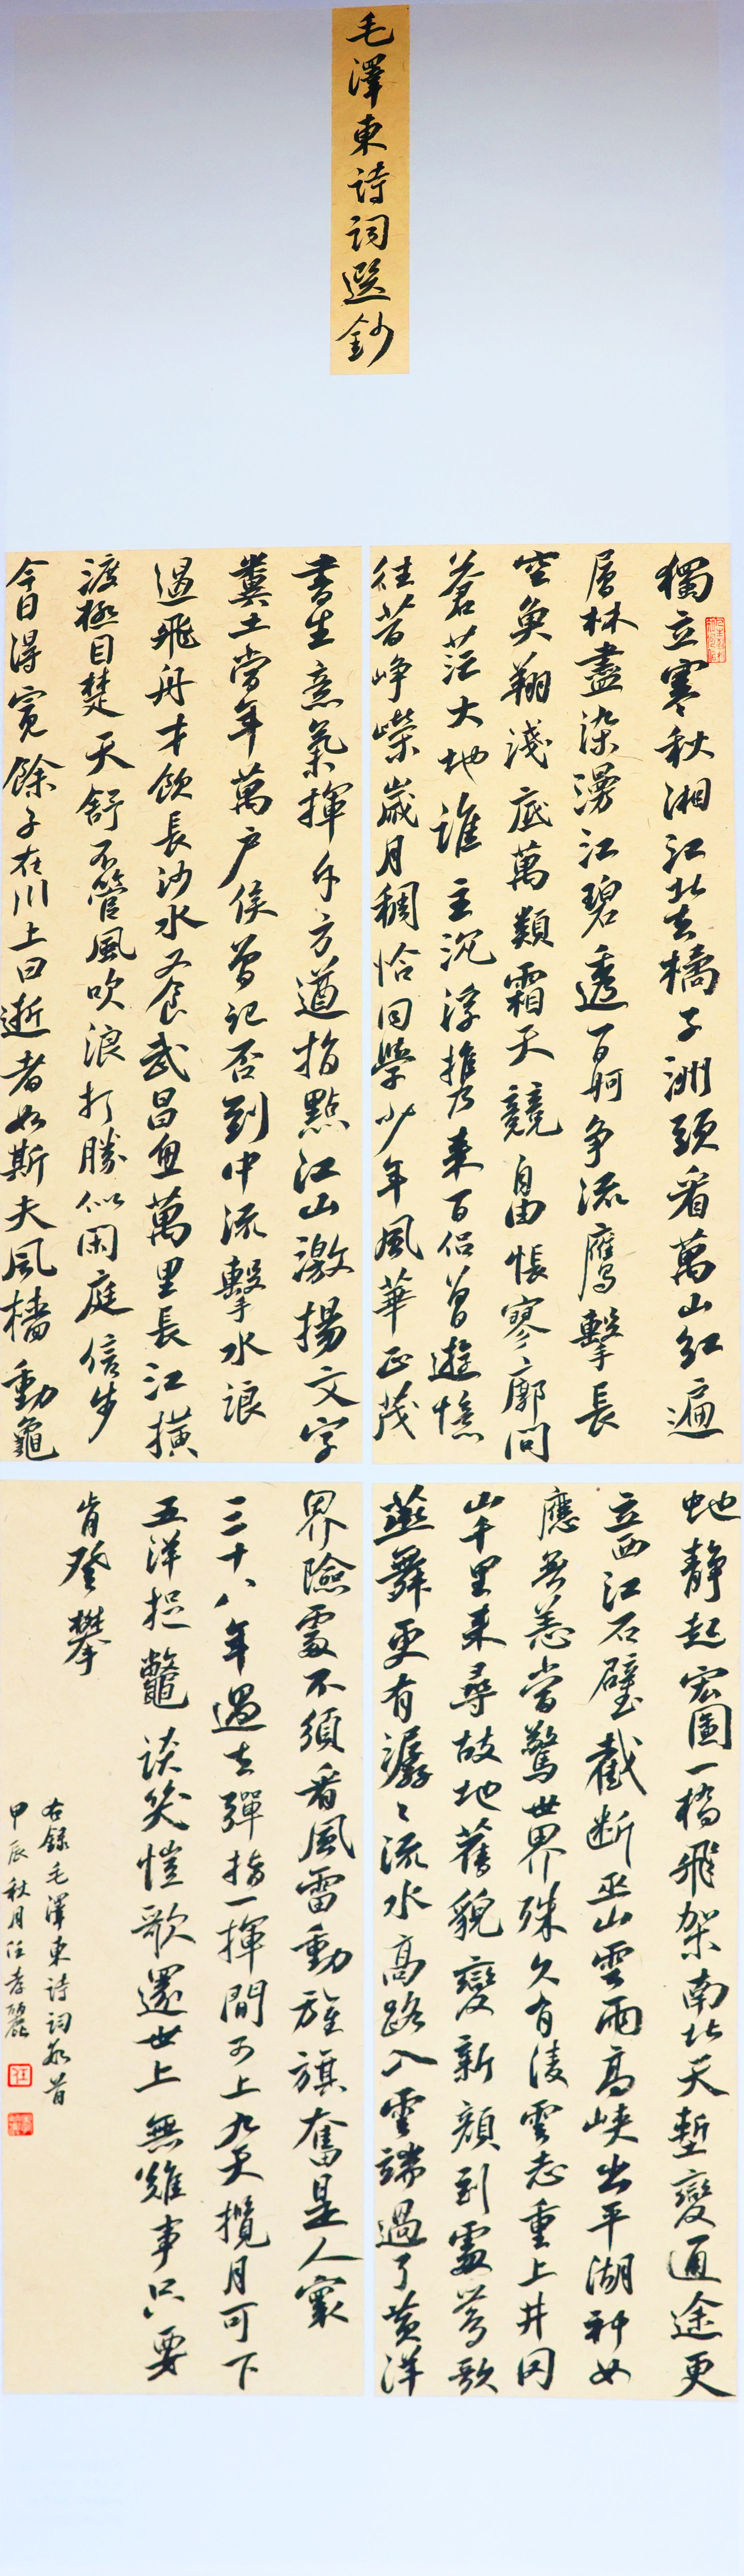 毛澤東詩詞選鈔
獨立寒秋湘江北去橘子洲頭看萬山紅遍
層林盡染漫江碧透百舸争流鷹擊長
空魚翔淺底萬類霜天競自由悵寥廓問
蒼茫大地誰主沉浮攜來百侣曾遊憶
往昔崢嶸歲月稠恰同學少年風華正茂
書生意氣揮斥方遒指點江山激揚文字
糞土當年萬户侯曾記否到中流擊水浪
遏飛舟才飲長沙水又食武昌魚萬里長江横
渡極目楚天舒不管風吹浪打勝似閑庭信步
今日得寬餘子在川上曰逝者如斯夫風檣動龜
虵靜起宏圖一橋飛架南北天塹變通途更
立西江石壁截斷巫山雲雨高峽出平湖神女
應無恙當驚世界殊久有凌雲志重上井岡
山千里來尋故地舊貌變新顔到處鶯歌
燕舞更有潺〻流水高路入雲端過了黄洋
界險處不須看風雷動旌旗奮是人寰
三十八年過去彈指一揮間可上九天攬月可下
五洋捉鱉談笑愷歌還世上無難事只要
肯登攀
右録毛澤東詩詞數首
甲辰秋月任孝麗